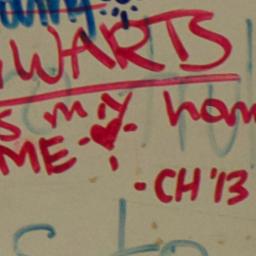 WARTS
s my hom
ME
- CH '13